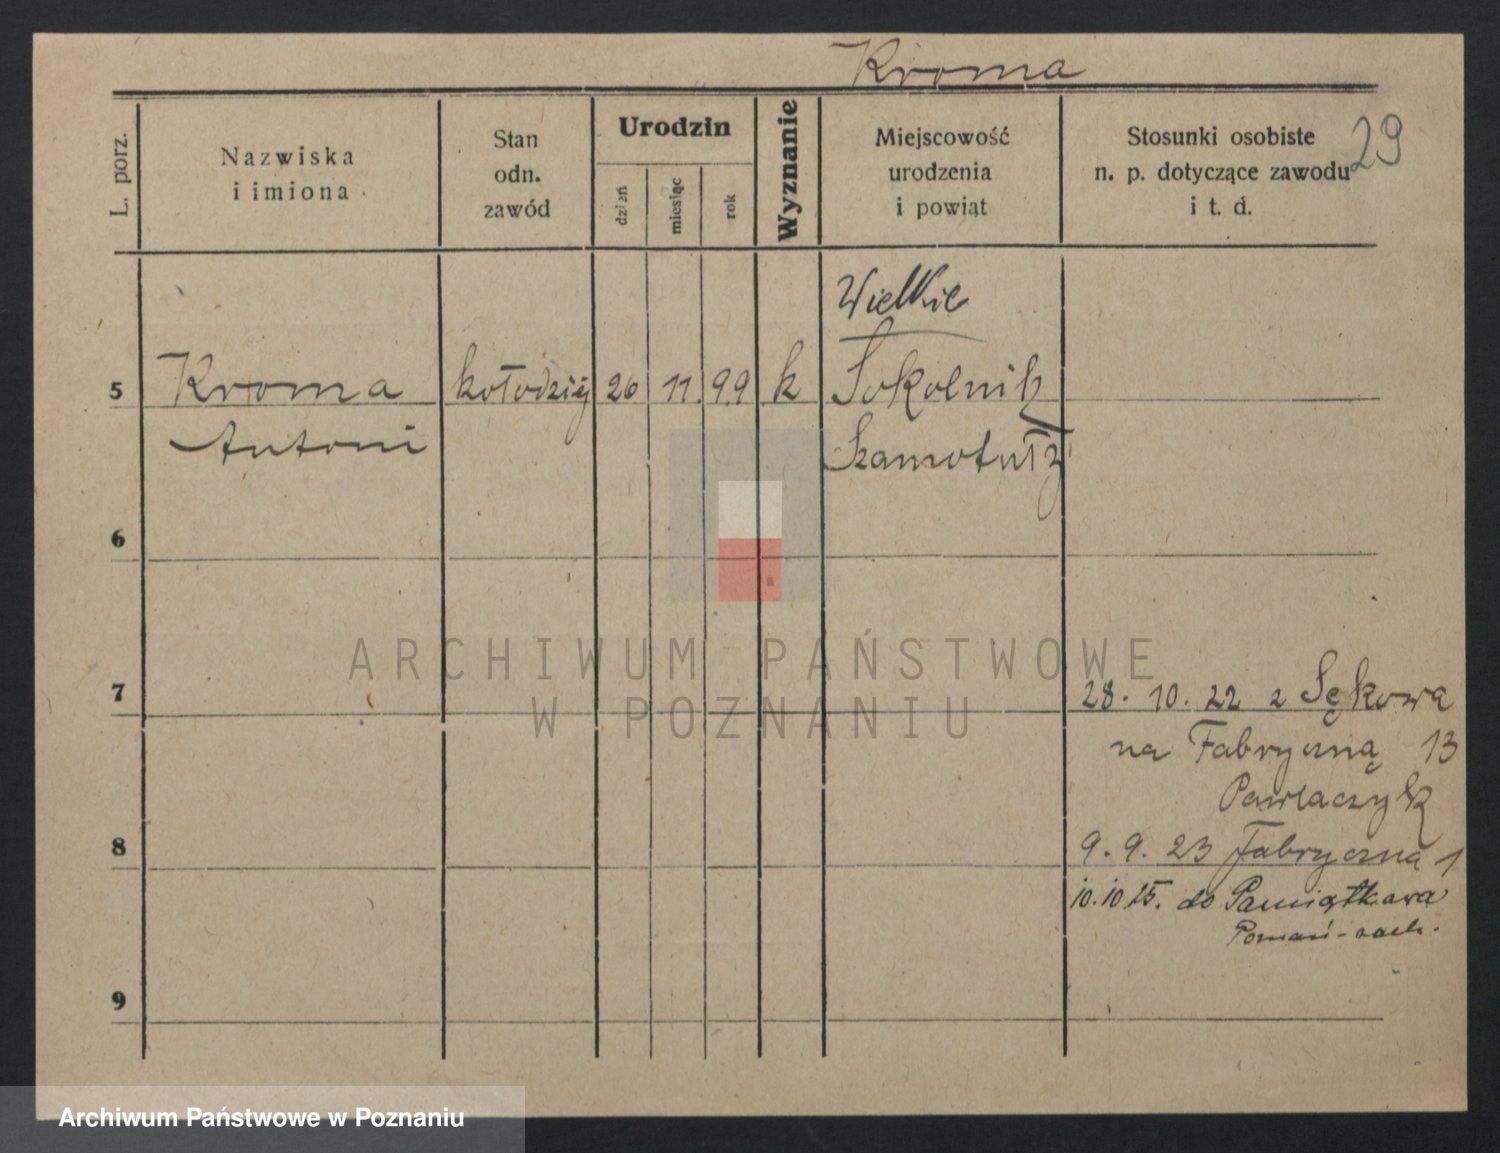 Kroma
29
L. porz.
Nazwiska
i imiona
Stan
odn.
zawód
Urodzin
dzień
miesiąc
rok
Wyznanie
Miejscowość
urodzenia
i powiąt
Stosunki osobiste
n. p. dotyczące zawodu
i t. d.
Wielkie
5 Kroma kołodziej 26 11. 99 k Sokolniki
Antoni Szamotuły
6
ARCHIWUM PAŃSTWOWE
W POZNANIU
7
28. 10. 22 z Sękowa
na Fabryczną 13
Pawlaczyk
8
9. 9. 23 Fabryczna 1
10.10.25. do Pamiątkowa
Poznań - zach.
9
Archiwum Państwowe w Poznaniu